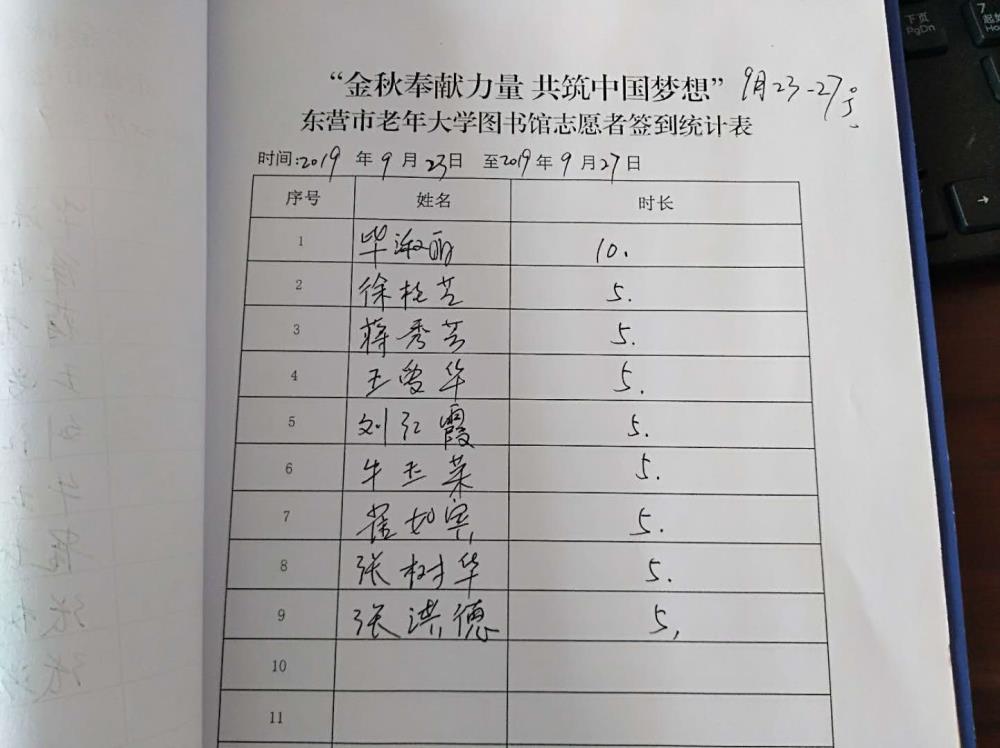 “金秋奉献力量 共筑中国梦想” 9月23-27号
东营市老年大学图书馆志愿者签到统计表
时间:2019 年 9 月 23日 至2019 年 9 月 27 日
序号 姓名 时长
1 毕淑丽 10.
2 徐桂芝 5.
3 蒋秀芸 5.
4 王爱华 5.
5 刘红霞 5.
6 牛玉菜 5.
7 崔如宾 5.
8 张树华 5.
9 张洪德 5,
10
11
下页
PgDn
7